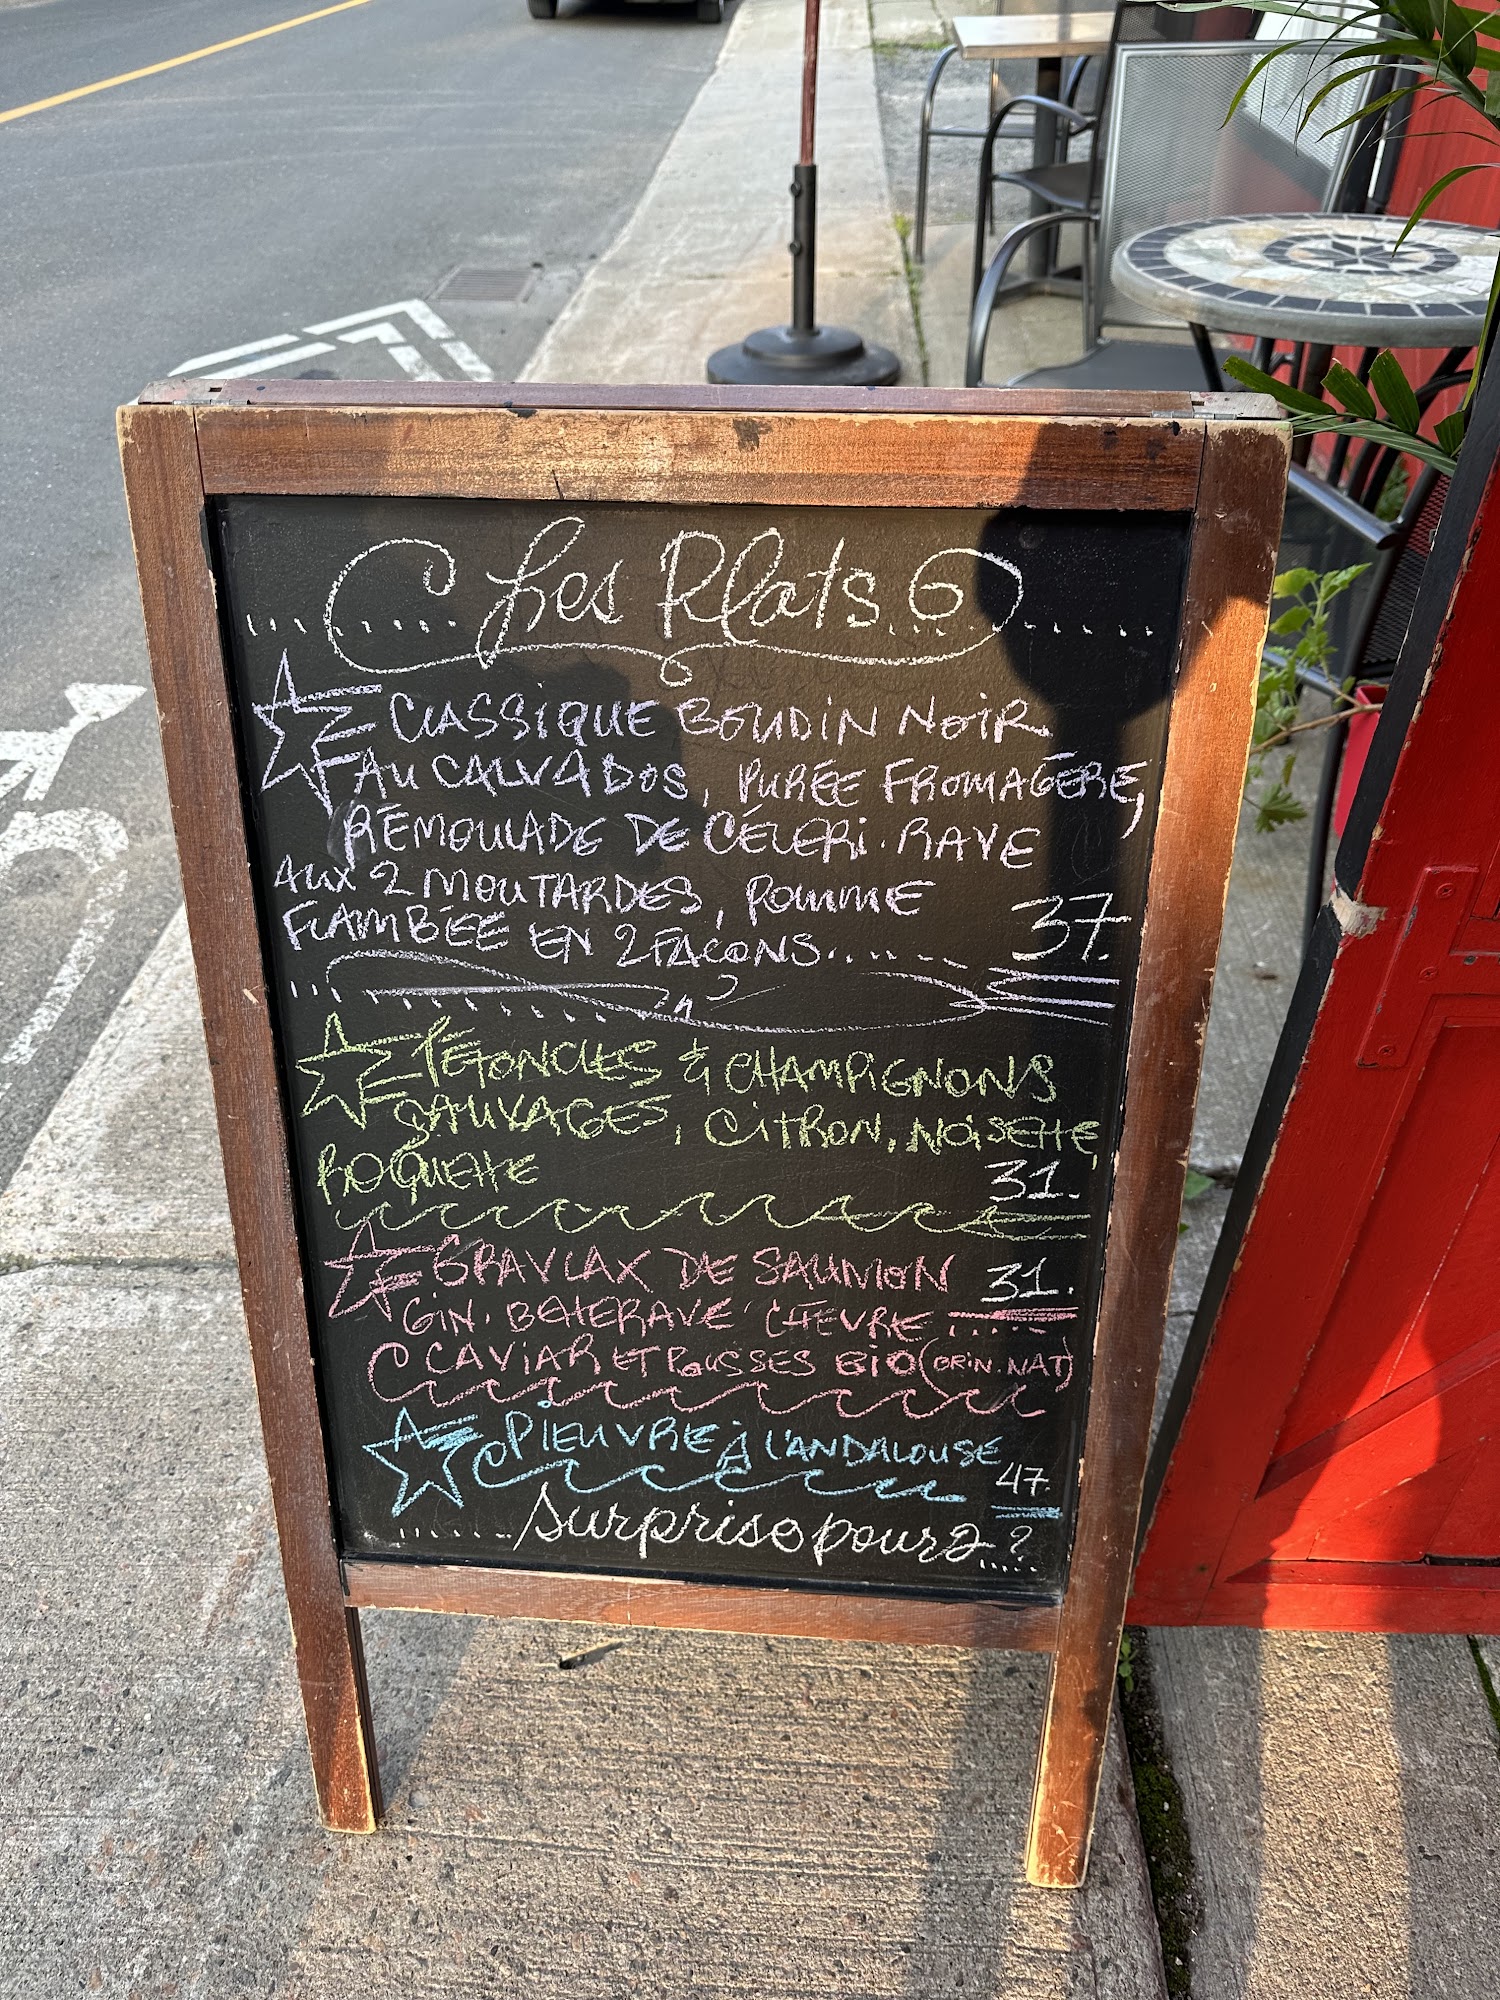 Les Plats
CLASSIQUE BOUDIN NOIR
AU CALVADOS, PURÉE FROMAGÈRE,
RÉMOULADE DE CÉLERI-RAVE
AUX 2 MOUTARDES, POMME
FLAMBÉE EN 2 FACONS....... 37.
PÉTONCLES & CHAMPIGNONS
SAUVAGES, CITRON, NOISETTE,
ROQUETTE 31.
GRAVLAX DE SAUMON 31.
GIN. BETTERAVE CHÈVRE .....
CAVIAR ET POUSSES BIO (ORIN. NAT)
PIEUVRE À L'ANDALOUSE
47.
...... Surprise pour 2 ..?..